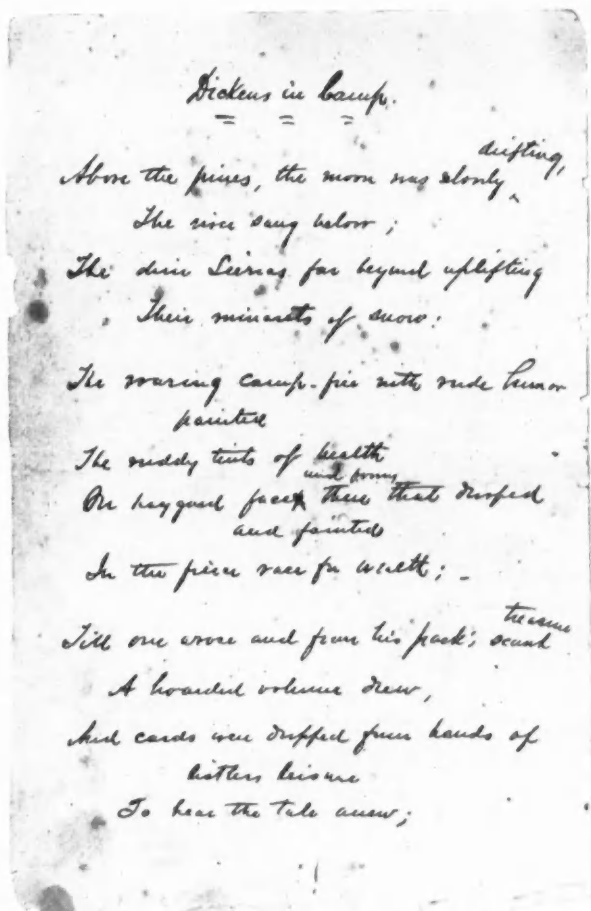 Dickens in Camp.
Above the pines, the moon was slowly drifting,
The river sang below;
The dim Sierras far beyond uplifting
Their minarets of snow:
The roaring camp-fire with rude humor
painted
The ruddy tints of health
On haggard face and form there that drooped
and fainted
In the fierce race for wealth;
Till one arose and from his pack's scant treasure
A hoarded volume drew,
And cards were dropped from hands of
listless leisure
To hear the tale anew;